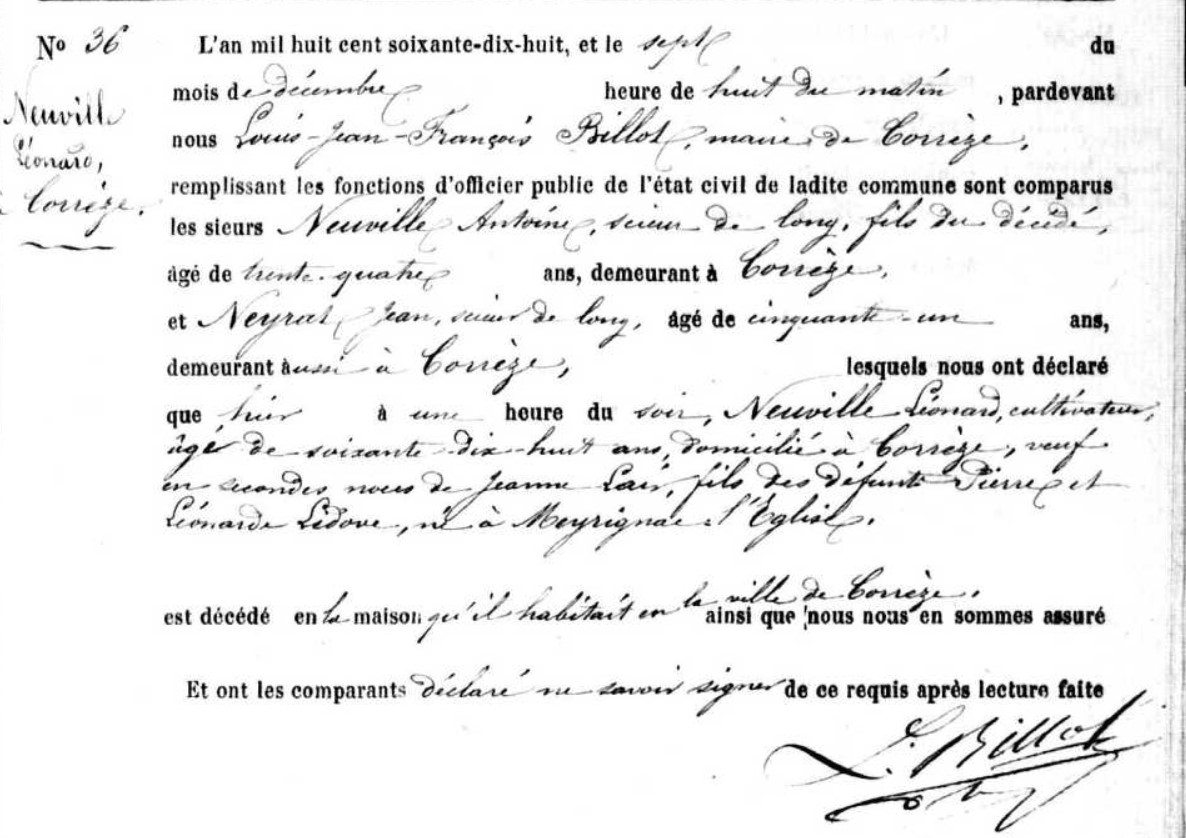 Nº 36
Neuville
Léonard,
Corrèze.
L'an mil huit cent soixante-dix-huit, et le sept du
mois de décembre heure de huit du matin , pardevant
nous Louis-Jean-François Billot, maire de Corrèze,
remplissant les fonctions d'officier public de l'état civil de ladite commune sont comparus
les sieurs Neuville Antoine, scieur de long, fils du décédé,
âgé de trente-quatre ans, demeurant à Corrèze,
et Neyrat Jean, scieur de long, âgé de cinquante-un ans,
demeurant aussi à Corrèze, lesquels nous ont déclaré
que hier à une heure du soir, Neuville Léonard, cultivateur,
âgé de soixante-dix-huit ans, domicilié à Corrèze, veuf
en secondes noces de Jeanne , fils des défunts Pierre et
Léonarde , né à Meyrignac-l'Eglise.
est décédé en la maison qu'il habitait en la ville de Corrèze. ainsi que nous nous en sommes assuré
Et ont les comparants déclaré ne savoir signer de ce requis après lecture faite
L. Billot